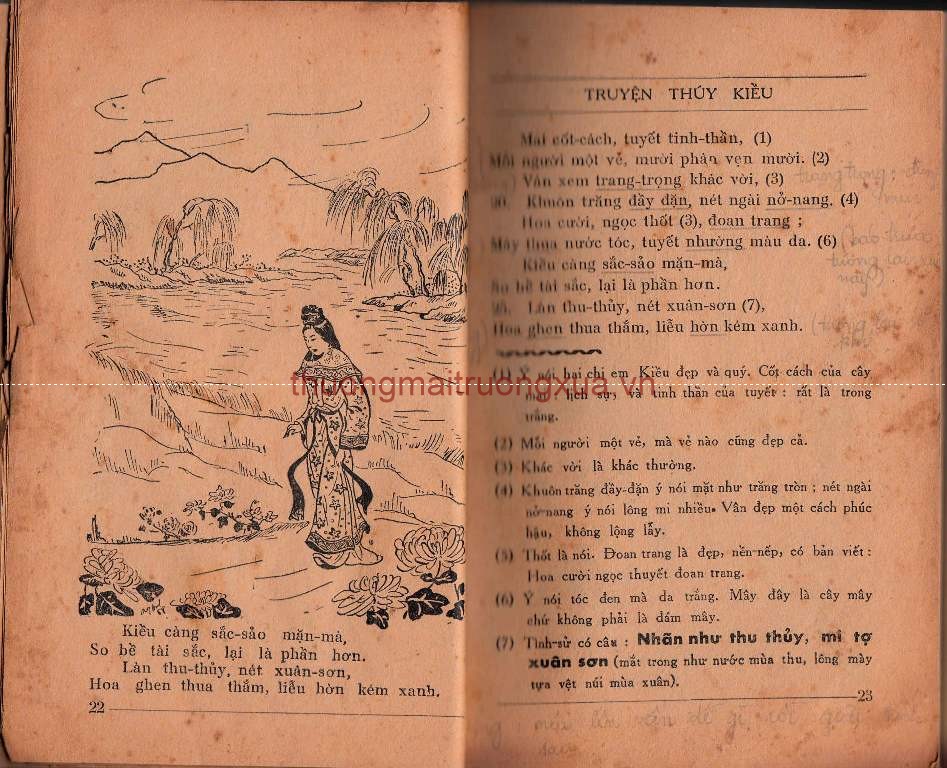 Kiều càng sắc-sảo mặn-mà,
So bề tài sắc, lại là phần hơn.
Làn thu-thủy, nét xuân-sơn,
Hoa ghen thua thắm, liễu hờn kém xanh.
22
TRUYỆN THÚY KIỀU
Mai cốt-cách, tuyết tinh-thần, (1)
Mỗi người một vẻ, mười phân vẹn mười. (2)
Vân xem trang-trọng khác vời, (3)
20. Khuôn trăng đầy đặn, nét ngài nở-nang. (4)
Hoa cười, ngọc thốt (3), đoan trang ;
Mây thua nước tóc, tuyết nhường màu da. (6)
Kiều càng sắc-sảo mặn-mà,
So bề tài sắc, lại là phần hơn.
25. Làn thu-thủy, nét xuân-sơn (7),
Hoa ghen thua thắm, liễu hờn kém xanh.
thuongmaitruongxua.vn
(1) Ý nói hai chị em Kiều đẹp và quý. Cốt cách của cây
lịch sự, và tinh thần của tuyết : rất là trong
trắng.
(2) Mỗi người một vẻ, mà vẻ nào cũng đẹp cả.
(3) Khác vời là khác thường.
(4) Khuôn trăng đầy-đặn ý nói mặt như trăng tròn ; nét ngài
nở-nang ý nói lông mi nhiều. Vân đẹp một cách phúc
hậu, không lộng lẫy.
(5) Thốt là nói. Đoan trang là đẹp, nền-nếp, có bản viết :
Hoa cười ngọc thuyết đoan trang.
(6) Ý nói tóc đen mà da trắng. Mây đây là cây mây
chứ không phải là đám mây.
(7) Tình-sử có câu : Nhãn như thu thủy, mi tợ
xuân sơn (mắt trong như nước mùa thu, lông mày
tựa vệt núi mùa xuân).
23